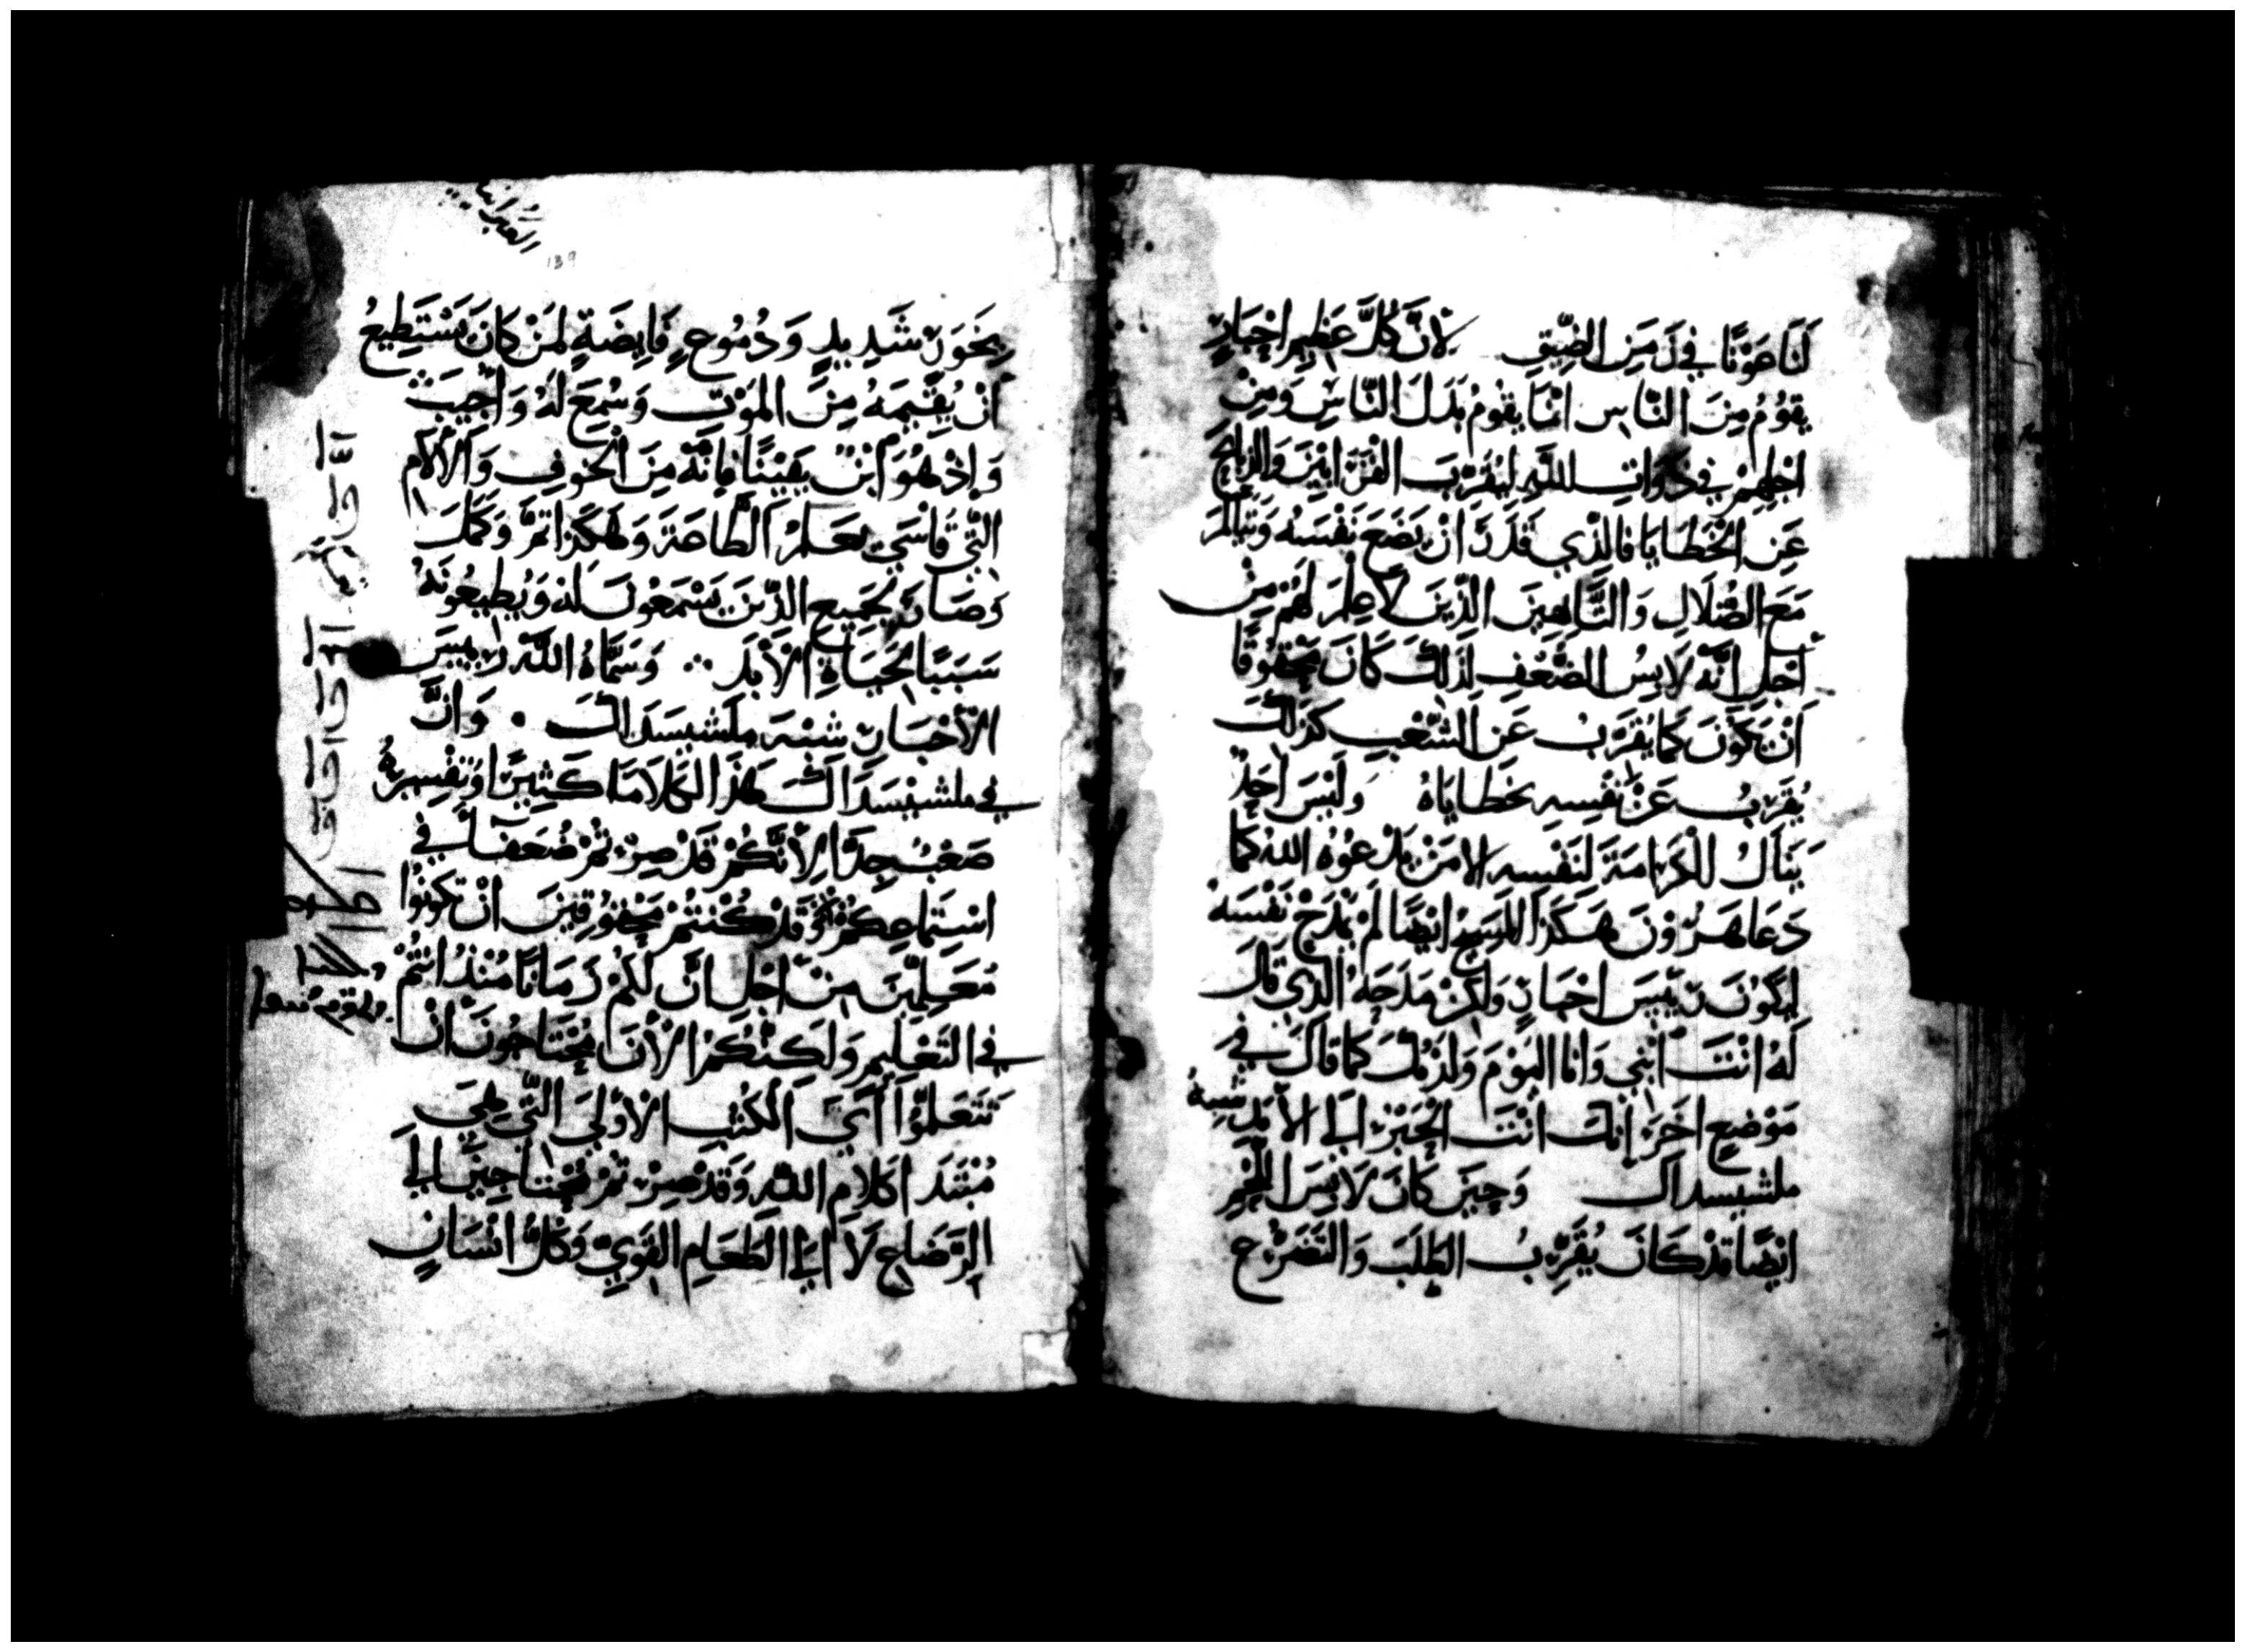 لَنَا عَوْنًا فِي زَمَنِ الضِّيقِ لِأَنَّ كُلَّ عَظِيمِ احْبَارٍ
يَقُومُ مِنَ النَّاسِ انَّمَا يَقُومُ بَدَلَ النَّاسِ وَمِنْ
اجْلِهِمْ فِي ذَوَاتِ اللَّهِ لِيُقَرِّبَ القَرَابِينَ وَالذبَائِحَ
عَنِ الخَطَايَا فالذِي قَدَرَ انْ يَضَعَ نَفْسَهُ وَيَتَالَمَ
مَعَ الضُّلَالِ وَالتَّايِهِينَ الذِينَ لَا عِلْمَ لَهُمْ مِنْ
اجْلِ انَّه لَابِسُ الضَّعْفِ لِذَلِكَ كَانَ مَحْقُوقًا
انْ يَكُونَ كَمَا يُقَرِّبُ عَنِ الشَّعْبِ كَذَلِكَ
يُقَرِّبُ عَنْ نَفْسِهِ بخَطَايَاهُ وَلَيْسَ احَدٌ
يَنَالُ الْكَرَامَةَ لِنَفْسِهِ الا مَنْ يَدْعُوهُ اللهُ كَمَا
دَعَا هَرُونَ هَكَذَا المَسِيحُ ايْضًا لَمْ يَمْدَحْ نَفْسَهُ
لِيَكُونَ رَيِّيسَ احْبَارٍ وَلَكِنْ مَدَحَهُ الذِي قَالَ
لَهُ انْتَ ابْنِي وَانا اليَوْمَ وَلَدْتُكَ كَمَا قَالَ فِي
مَوْضِعٍ اخَرَ انكَ انْتَ الْحَبْرُ الَى الأَبَدِ شِبْهُ
ملشيسداك وَحِينَ كَانَ لَابِسَ اللَّحْمِ
ايْضًا قدْ كَانَ يُقَرِّبُ الطَّلَبَ وَالتَّضَرُّعَ
العبرانيين
139
بِخَوَرٍ شَدِيدٍ وَدُمُوعٍ فَايِضَةٍ لِمَنْ كَانَ يَسْتَطِيعُ
انْ يُقِيمَهُ مِنَ المَوْتِ وَسُمِعَ لَهُ وَاجِيبَ
وَاذْ هُوَ ابْنٌ يَقِينًا فَانَّه مِنَ الْخوْفِ وَالأَلَامِ
التِي قَاسَى تعَلمَ الطَّاعَةَ وَهَكَذَا تمَّ وَكَمَلَ
وَصَارَ لِجَمِيعِ الذِّينَ يَسْمَعُونَ لَهُ وَيُطِيعُونَهُ
سَبَبًا لِحَيَاةِ الأَبَدِ وَسَمَّاهُ اللَّهُ رَييسَ
الأَحْبَارِ شِبْهَ ملشيسداك وَانَّ
فِي ملشيسداك هَذَا الكَلَامَا كَثِيرًا وَتَفْسِيرهُ
صَعْبٌ جِدًّا لِأَنَّكُمْ قَدْ صِرْتُمْ ضُعَفَا فِي
اسْتِمَاعِكُمْ وَقَدْ كُنْتُمْ مَحْقُوقِينَ انْ تَكُونُوا
مُعَلِّمِينَ مِنْ اجْلِ انَّ لَكُمْ زَمَانًا مُنْذُ انْتُمْ
فِي التَعْلِيمِ وَلَكِنَّكُمْ الْأَنَ تَحْتَاجُونَ انْ
تَتَعَلمُوا ايَ الكُتُبِ الأُولَى التِي هِيَ
مُبْتَدَا كَلَامِ اللَّهِ وَقَدْ صِرْتُمْ مُحْتَاجِينَ الَى
الرَّضَاعِ لَا الَى الطَّعَامِ القَوِيِّ وَكُلُّ انْسَانٍ